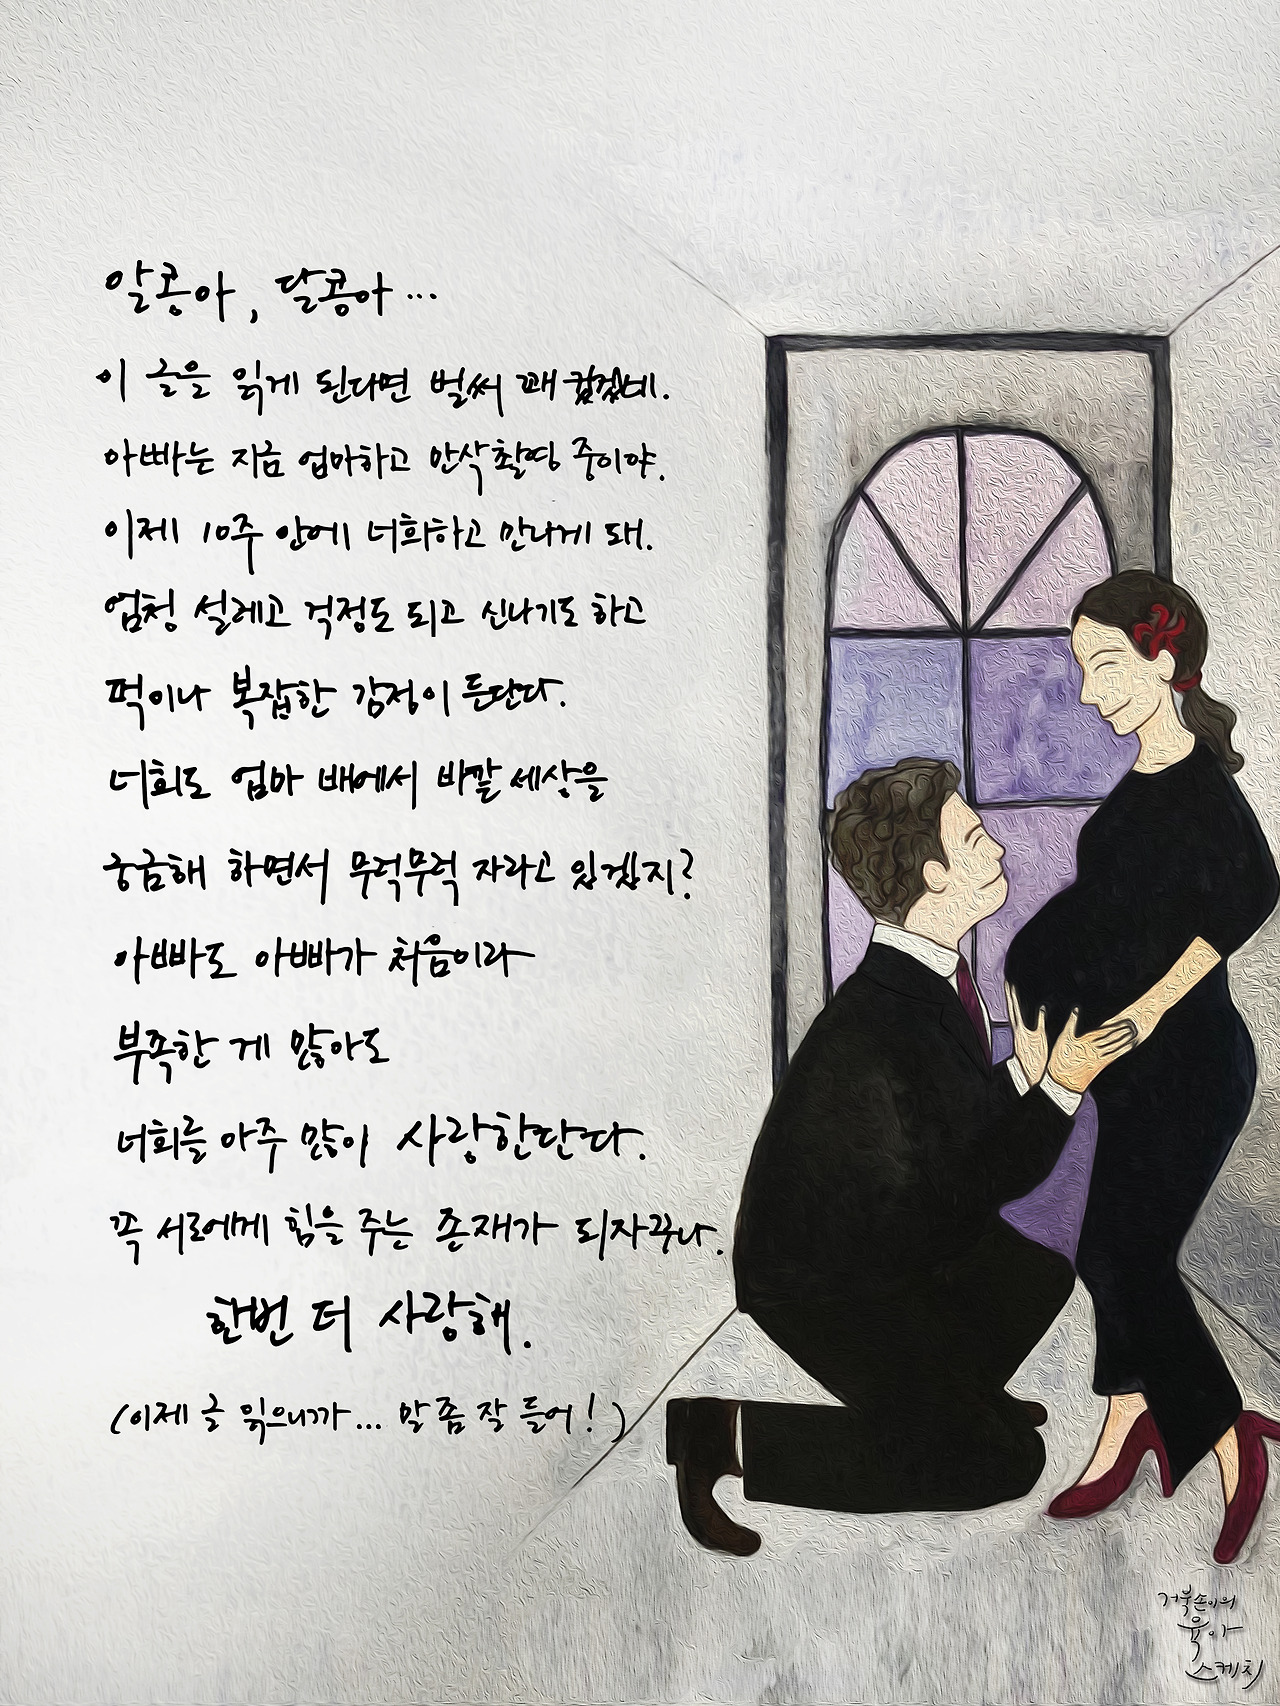 알콩아, 달콩아...
이 글을 읽게 된다면 벌써 꽤 컸겠네.
아빠는 지금 엄마하고 만삭촬영 중이야.
이제 10주 안에 너희하고 만나게 돼.
엄청 설레고 걱정도 되고 신나기도 하고
퍽이나 복잡한 감정이 든단다.
너희도 엄마 배에서 바깥 세상을
궁금해 하면서 무럭무럭 자라고 있겠지?
아빠도 아빠가 처음이라
부족한 게 많아도
너희를 아주 많이 사랑한단다.
꼭 서로에게 힘을 주는 존재가 되자꾸나.
한번 더 사랑해.
(이제 글 읽으니까... 말 좀 잘 들어!)
거북손이의
육아
스케치